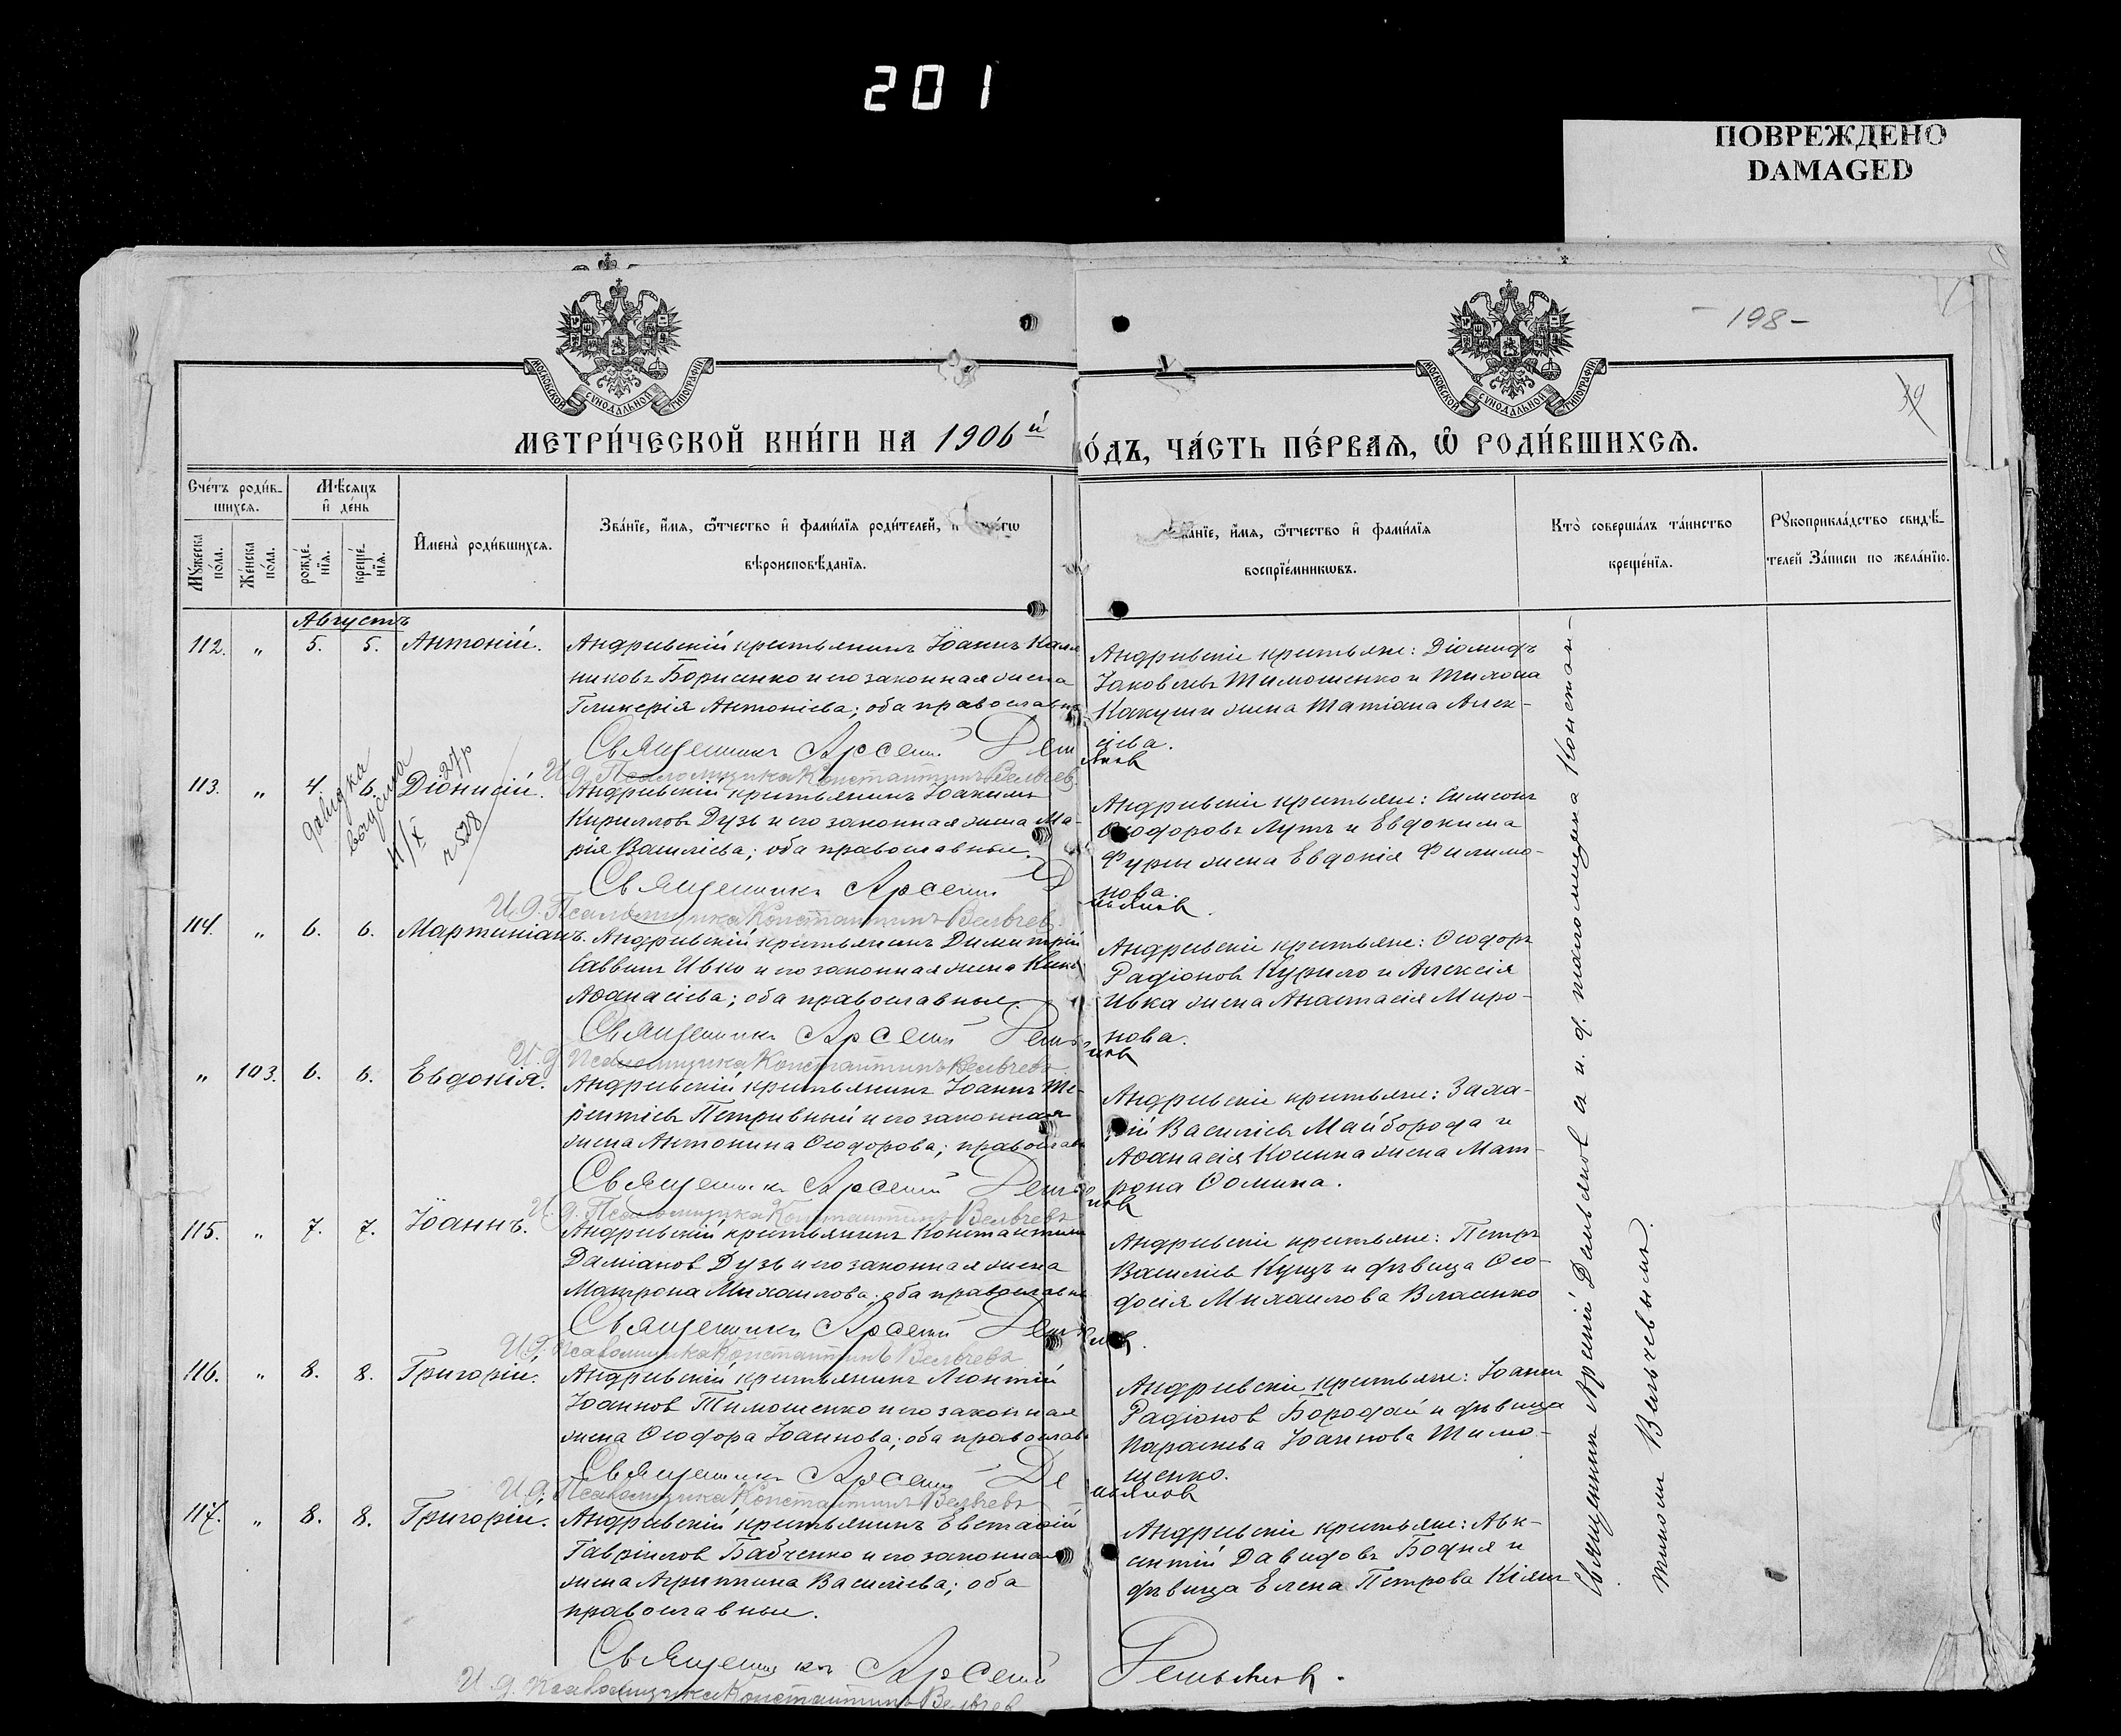 201
ПОВРЕЖДЕНО
DAMAGED
МОСКОВСКОЙ СѴНОДАЛЬНОЙ ТИПОГРАФІИ
МОСКОВСКОЙ СѴНОДАЛЬНОЙ ТИПОГРАФІИ
- 198 -
39
МЕТРИ́ЧЕСКОЙ КНИ́ГИ НА 1906й
О́ДЪ, ЧА́СТЬ ПЕ́РВАѦ, Ѡ РОДИ́ВШИХСѦ.
Сче́тъ роди́в-
шихсѧ.
Мꙋ́жеска по́ла.
Же́нска по́ла.
Мѣ́сѧцъ
и҆ де́нь
рожде́-
нїѧ.
креще́-
нїѧ.
И҆мена̀ роди́вшихсѧ.
Зва́нїе, и҆́мѧ, ѻ҆́тчество и҆ фами́лїѧ роди́телей, и҆
вѣроисповѣ́данїѧ.
и҆́мѧ, ѻ҆́тчество и҆ фами́лїѧ
воспрїе́мникѡвъ.
Кто̀ соверша́лъ та́инство
креще́нїѧ.
Рꙋкоприкла́дство свидѣ́-
телей За́писи по жела́нїю.
Августъ
112. „ 5. 5. Антоній.
Андреевскій крестьянинъ Іоаннъ
никовъ Борисенко и его законная жена
Гликерія Антоніева; оба православн
Священникъ Арсеній Демьяновъ
И. д. Псаломщика Константинъ Вельчевъ
Андреевскіе крестьяне: Діомидъ
Іаковлевъ Тимошенко и Тихона
Какуши жена Татіана Алек-
сіева.
113. „ 4. 6. Діонисій.
27р
довідка
видана
11/X
528
Андреевскій крестьянинъ Іоакимъ
Кирилловъ Дузь и его законная жена Ма-
рія Василіева; оба православные.
Священникъ Арсеній Демьяновъ.
И. д. Псаломщика Константинъ Вельчевъ.
Андреевскіе крестьяне: Симеонъ
Ѳеодоровъ Лутъ и Евдокима
Фурсы жена Евдокія Филимо-
нова.
114. „ 6. 6. Мартиніанъ.
Андреевскій крестьянинъ Димитрій
Саввинъ Ивко и его законная жена
Аѳанасіева; оба православные.
Священникъ Арсеній Демьяновъ
И. д. Псаломщика Константинъ Вельчевъ.
Андреевскіе крестьяне: Ѳеодоръ
Радіоновъ Курило и Алексія
Ивка жена Анастасія Миро-
нова.
„ 103. 6. 6. Евдокія.
Андреевскій крестьянинъ Іоаннъ Те-
рентіевъ Петривный и его законная
жена Антонина Ѳеодорова; православ
Священникъ Арсеній Демьяновъ
И. д. Псаломщика Константинъ Вельчевъ
Андреевскіе крестьяне: Заха-
рій Василіевъ Майборода и
Аѳанасія Кошика жена Мат-
рона Ѳомина.
115. „ 7. 7. Іоаннъ.
Андреевскій крестьянинъ Константинъ
Даміановъ Дузь и его законная жена
Матрона Михаилова; оба православн
Священникъ Арсеній Демьяновъ.
И. д. Псаломщика Константинъ Вельчевъ
Андреевскіе крестьяне: Петръ
Василіевъ Куцъ и дѣвица Ѳео-
досія Михаилова Власенко
116. „ 8. 8. Григорій.
Андреевскій крестьянинъ Леонтій
Іоанновъ Тимошенко и его законная
жена Ѳеодора Іоаннова; оба православ
Священникъ Арсеній Демьяновъ
И. д. Псаломщика Константинъ Вельчевъ
Андреевскіе крестьяне: Іоаннъ
Радіоновъ Бородай и дѣвица
Параскева Іоаннова Тимо-
шенко.
117. „ 8. 8. Григорій.
Андреевскій крестьянинъ Евстафій
Гавріиловъ Бабченко и его законная
жена Агриппина Василіева; оба
православные.
Священникъ Арсеній Демьяновъ.
И. д. Псаломщика Константинъ Вельчев
Андреевскіе крестьяне: Авк-
сентій Давидовъ Бодня и
дѣвица Елена Петрова Кіян
Священникъ Арсеній Демьяновъ и и. д. псаломщика Констан-
тиномъ Вельчевымъ.